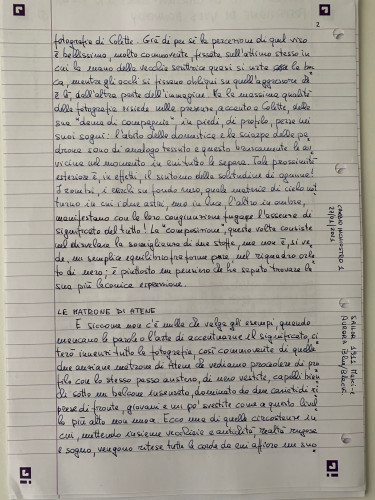 2
fotografia di Colette. Già di per sé la percezione di quel viso
è bellissima, molto commovente, fissata sull'attimo stesso in
cui la mano della vecchia scrittrice quasi si vista la boc
ca, mentre gli occhi si fissano obliqui su quell'aggressore che
è là, dall'altra parte dell'immagine. Ma la massima qualità
della fotografia risiede nella presenza, accanto a Colette, della
sua "dama di compagnia", in piedi, di profilo, persa nei
suoi sogni: l'abito della domestica e la sciarpa della pa
drona sono di analogo tessuto e questo bruscamente le av
vicina nel momento in cui tutto le separa. Tale prossimità
esteriore è, in effetti, il sintomo della solitudine di ognuna!
I rombi, i cerchi su fondo raso, quale materia di cielo not
turno in cui i due astri, uno in luce, l'altro in ombra,
manifestano con la loro congiunzione fugace l'assenza di
significato del tutto! La "composizione", questa volta consiste
nel disvelare la somiglianza di due stoffe, ma non è, si ve
de, un semplice equilibrio fra forme pure, nel riquadro orla
to di nero; è piuttosto un pensiero che ha saputo trovare la
sua più laconica espressione.
LE MATRONE DI ATENE
E siccome non c'è nulla che valga gli esempi, quando
mancano le parole o l'arte di accentuarne il significato, ci
terò innanzi tutto la fotografia, così commovente di quelle
due anziane matrone di Atene che vediamo procedere di pro
filo con lo stesso passo austero, di nero vestite, capelli bian
chi sotto un balcone insensato, dominato da due cariatidi ri
prese di fronte, giovani e un po' svestite come a questo livello
la più alta non nuoce. Ecco una di quelle circostanze in
cui, mettendo insieme vecchiaia e antichità, realtà rugosa
e sogno, vengono ritese tutte le corde da cui affiora un suo
CARGO INCHIOSTRO 1
21/04/2022
SAILOR 1911
AURORA BLU/BLACK